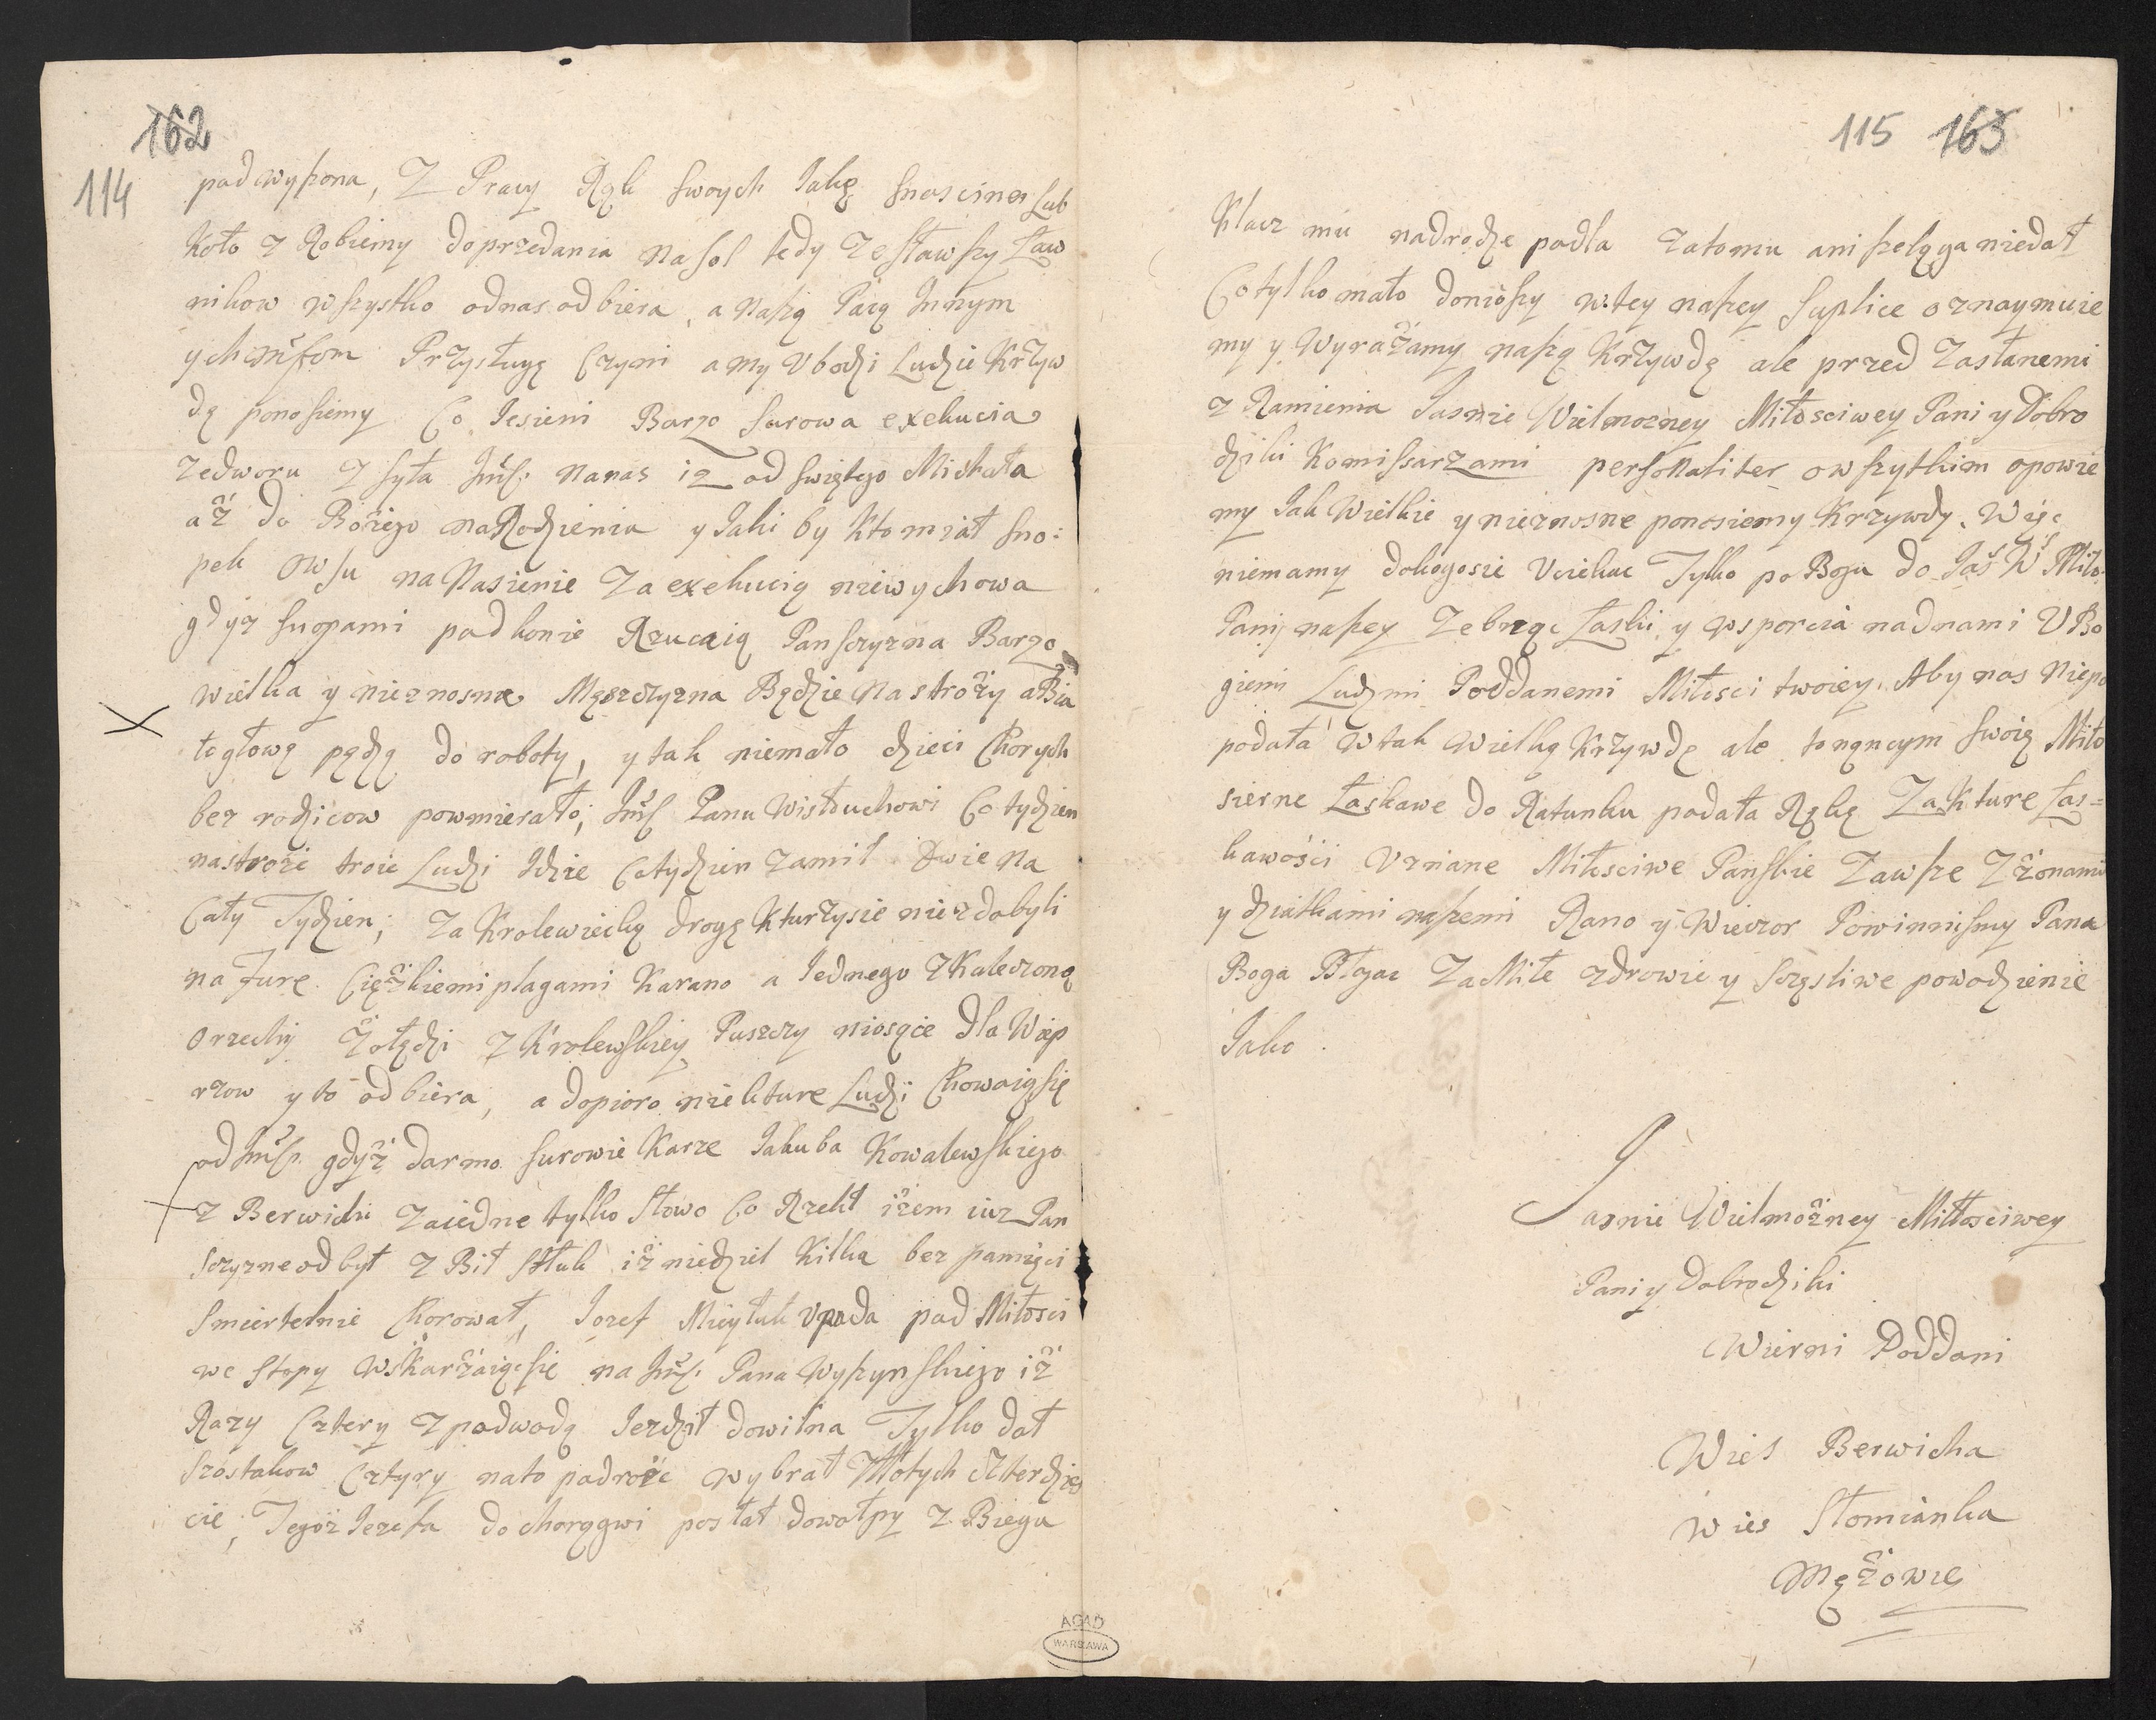 162
114
podwyszona, Z Pracy Rąk swoych Jakę snascinę Lub
Koło Z Robiemy doprzedania na sol tedy Zesławszy Ław
nikow wszystko odnas odbiera, a Naszą Pracą Innym
Przysługę Czyni a my Vbodzy Ludzie Krzyw
dę ponosiemy Co Jesieni Barzo surowa exekucia
zedworu Z syła Jmsc: nanas iz od swiętego Michała
aż do Bożego naRodzienia y Jaki by Kto miał sno:
pek owsu na Nasienie Za exekucią niewychowa
gdyz snopami pod konie Rzucaią Panszczyzna Barzo
wielka y nieznosna Męszczyzna Będzie na stroży a Bia
tegłowę pędzą do roboty, y tak niemało dzieci Chorych
bez rodzicow powmierało; Jmsc Panu Wistouchowi Co tydzien
nastroże troie Ludzi Idzie Co tydzien zamil Dwie na
Cały Tydzien; Za Krolewiecką drogę Kturzysie niezdobyli
na Furę Cięzkiemi plagami Karano a Jednego Zkaleczono
orzechy Żołędzi Z Krolewskiey Puszczy niosące dla Wiep
rzow y to odbiera, a dopioro niekture Ludzi Chowaią się
od Jmsc. gdyż darmo surowie Karze Jakuba Kowalewskiego
Z Berwichi Zaiedne tylko słowo Co Rzekł iżem iuz Pan
szczyzne odbył Z Bił sztuk iż niedziel Kilka bez pamięci
smiertelnie Chorował, Jozef Mieytuk Vpada pod Miłosci
we stopy wskarżaiącsie na Jmsc: Pana Wyszynskiego iż
Razy Cztery Zpodwodą Jezdził dowilna Tylko dał
szostakow Cztyry nato podroże wybrał Złotych Czterdzies
cie; Tegoż Jozefa dochorągwi posłał dowołpy Z Biegu
115 163
Klacz mu nadrodze padła zatomu ani szelęga niedał
Cotylko mało doniosszy wtey naszey suplice oznaymuie
my y Wyrażamy naszą Krzywdę ale przed Zasłanemi
z Ramienia Jasnie Wielmozney Miłosciwey Pani y Dobro
dziki Komissarzami personaliter owszytkim opowie
my Jak Wielkie y nieznosne ponosiemy Krzywdy. Więc
niemamy dokogosie Vciekac Tylko po Bogu do Jas W Miło
Pani naszey Zebrząc Łaski y wsporcia nadnami VBo
giemi Ludzmi Poddanemi Miłosci twoiey. Aby nas niepo
podała wtak Wielką Krzywdę ale tonącym swoię Miło
sierne Łaskawe do Ratunku podała Rękę Zakture Łas=
kawości Vznane Miłosciwe Panskie Zawsze Zżonami
y dziatkami naszemi Rano y Wieczor Powinnismy Pana
Boga Błagac ZaMiłe zdrowie y sczęsliwe powodzienie
Jako.
Jasnie Wielmożney Miłosciwey
Pani y Dobrodziki
Wierni Poddani
Wies Berwicha
Wies Słomianka
Mężowie
AGAD
WARSZAWA